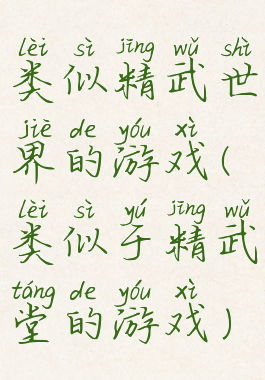 lèi sì jīng wǔ shì
类似精武世
jiè de yóu xì
界的游戏(
lèi sì yú jīng wǔ
类似于精武
táng de yóu xì
堂的游戏)